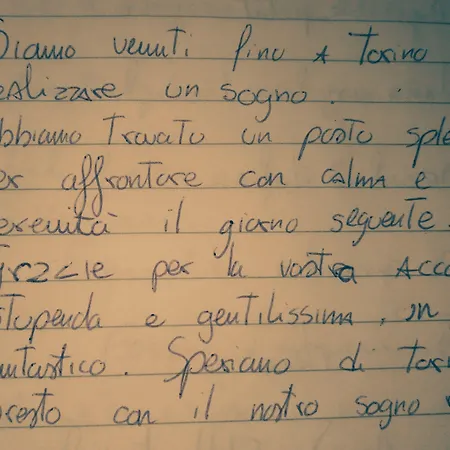 Siamo venuti fino A Torino
ealizzare un sogno.
bbiamo trovato un posto sple
er affrontare con calma e
erenità il giorno seguente.
Grazie per la vostra Acco
stupenda e gentilissima, in
ntastico. Speriamo di tor
resto con il nostro sogno